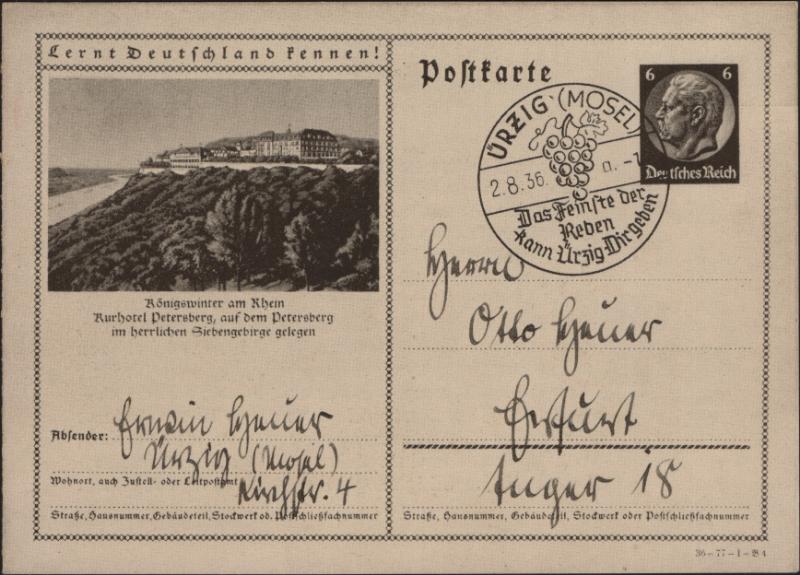 Lernt Deutschland kennen!
Königswinter am Rhein
Kurhotel Petersberg, auf dem Petersberg
im herrlichen Siebengebirge gelegen
Absender: Erwin Heuer
Ürzig (Mosel)
Wohnort, auch Zustell- oder Leitpostamt
Kirchstr. 4
Straße, Hausnummer, Gebäudeteil, Stockwerk od. Postschließfachnummer
Postkarte
6 6
Deutsches Reich
ÜRZIG (MOSEL)
2.8.36.
Das Feinste der
Reben
kann Ürzig Dir geben
Herrn
Otto Heuer
Erfurt
Anger 18
Straße, Hausnummer, Gebäudeteil, Stockwerk oder Postschließfachnummer
36-77-1-B4